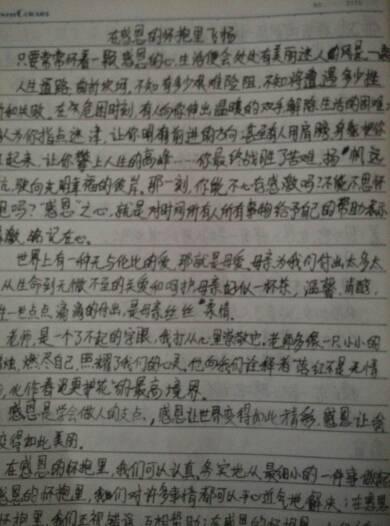 在感恩的怀抱里飞扬
只要常常怀着一颗感恩的心,生活便会处处有美丽迷人的风景。
人生道路,曲折坎坷,不知有多少艰难险阻,不知将遭遇多少挫
和失败。在危困时刻,有人向你伸出温暖的双手,解除生活的困难
人为你指点迷津,让你明有前进的方向;甚至有人用肩膀,身躯把你
起来,让你攀上人生的高峰……你最终战胜了苦难,扬帆远
航,驶向光明幸福的彼岸。那一刻,你能不心存感激吗?你能不思怀
恩吗?“感恩”之心,就是对时间所有人所有事物给予自己的帮助表示
激,铭记在心。
世界上有一种无与伦比的爱,那就是母爱。母亲为我们付出太多太
从生命到无微不至的关爱和呵护,母亲好似一杯茶,温馨,清醇,
一点点,滴滴的付出,是母亲丝丝柔情。
老师,是一个了不起的字眼,我打从心里崇敬他。老师多像一只小小的
烛,燃尽自己,照耀了我们的心灵。他向我们诠释着“落红不是无情
,化作春泥更护花”的最高境界。
感恩是学会做人的支点,感恩让世界变得如此精彩,感恩让
变得如此美丽。
在感恩的怀抱里,我们可以认真,务实地从最细小的一件事做起
感恩的怀抱里,我们对许多事情都可以平心近气地解决;在感恩
怀抱里,我们